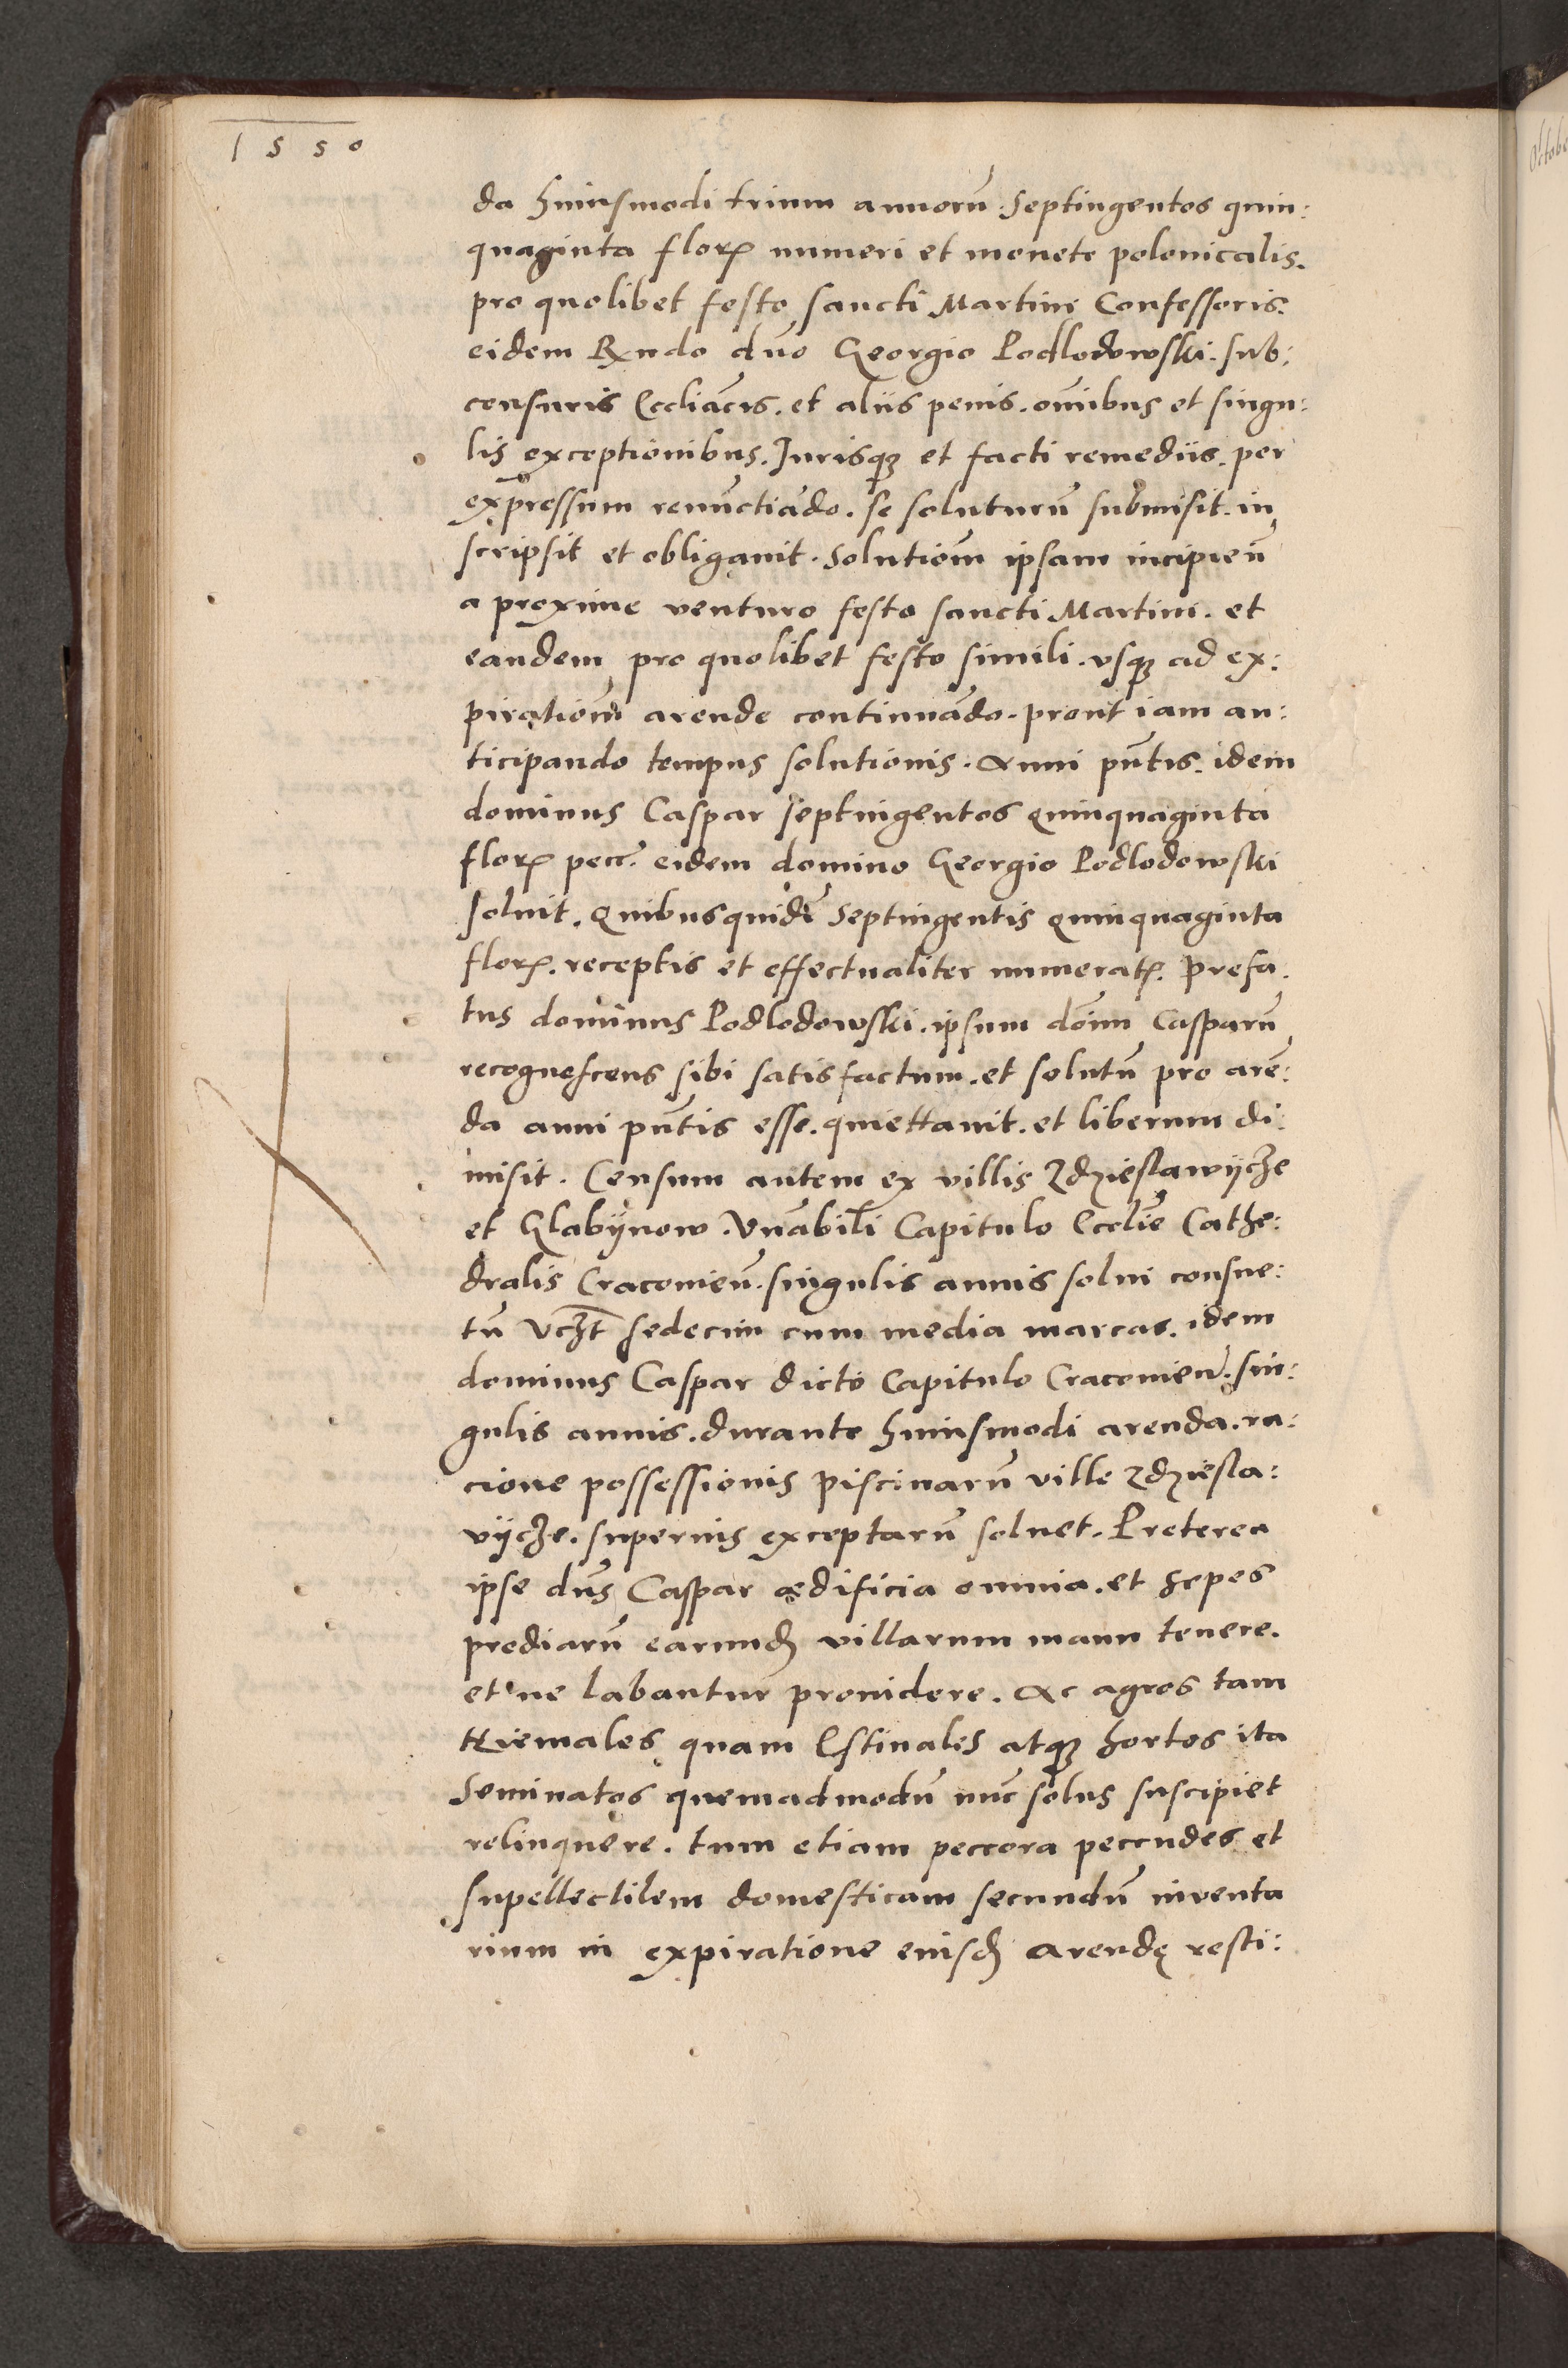 1550
da huiusmodi trium annorū. Septingentos quin:
quaginta floꝝ numeri et monete polonicalis.
pro quolibet festo sancti Martini Confessoris.
eidem Rndo dno Georgio Podlodowski. sub:
censuris Eccliacis. et aliis penis. omibus et singu:
lis exceptionibus. Jurisqꝫ et facti remediis. per
expressum renunctiādo. se soluturū submisit. in
scripsit et obligauit. Solutiom ipsam incipien̄
a proxime venturo festo sancti Martini. et
eandem pro quolibet festo simili. vsqꝫ ad ex:
piratiom arende continuādo. prout iam an:
ticipando tempus solutionis. Anni pn̄tis. idem
dominus Caspar septuigentos quinquaginta
floꝝ pecc. eidem domino Georgio Podlodowski
soluit. Quibusquidē Septuigentis quinquaginta
floꝝ. receptis et effectualiter numeratꝭ. prefa.
tus dominus Podlodowski. ipsum doim Casparū
recognoscens sibi satisfactum. et solutū pro arē:
da anni pn̄tis esse. quiettauit. et liberum di:
misit. Censum autem ex villis Zdzieslawijcze
et Glabijnow. Vnabili Capitulo Ecclie Cathe:
dralis Cracouien̄. singulis annis solui consue:
tū Vcꝫt sedecim cum media marcas. idem
dominus Caspar dicto Capitulo Cracouien̄. sin:
gulis annis. durante huiusmodi arenda. ra:
cione possessionis piscinarū ville Zdziesla:
vijcze. superius exceptarū soluet. Preterea
ipse dn̄s Caspar ædificia omnia. et sepes
prediarū earumd villarum manu tenere.
et ne labantur prouidere. Ac agros tam
Hiemales quam Estiuales atqꝫ hortos ita
Seminatos quemadmodū nūc solus suscipiet
relinquere. tum etiam peccora peccudes et
supellectilem domesticam secundū inventa
rium in expiratione eiusd arendę resti: